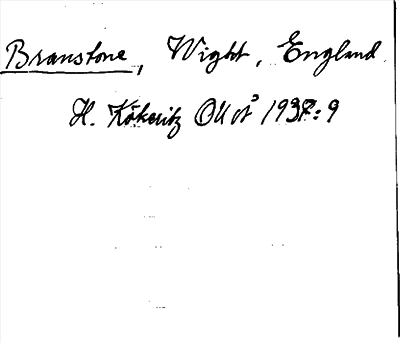 Branstone, Wight, England
H. Kökeritz OUÅ 1937:9